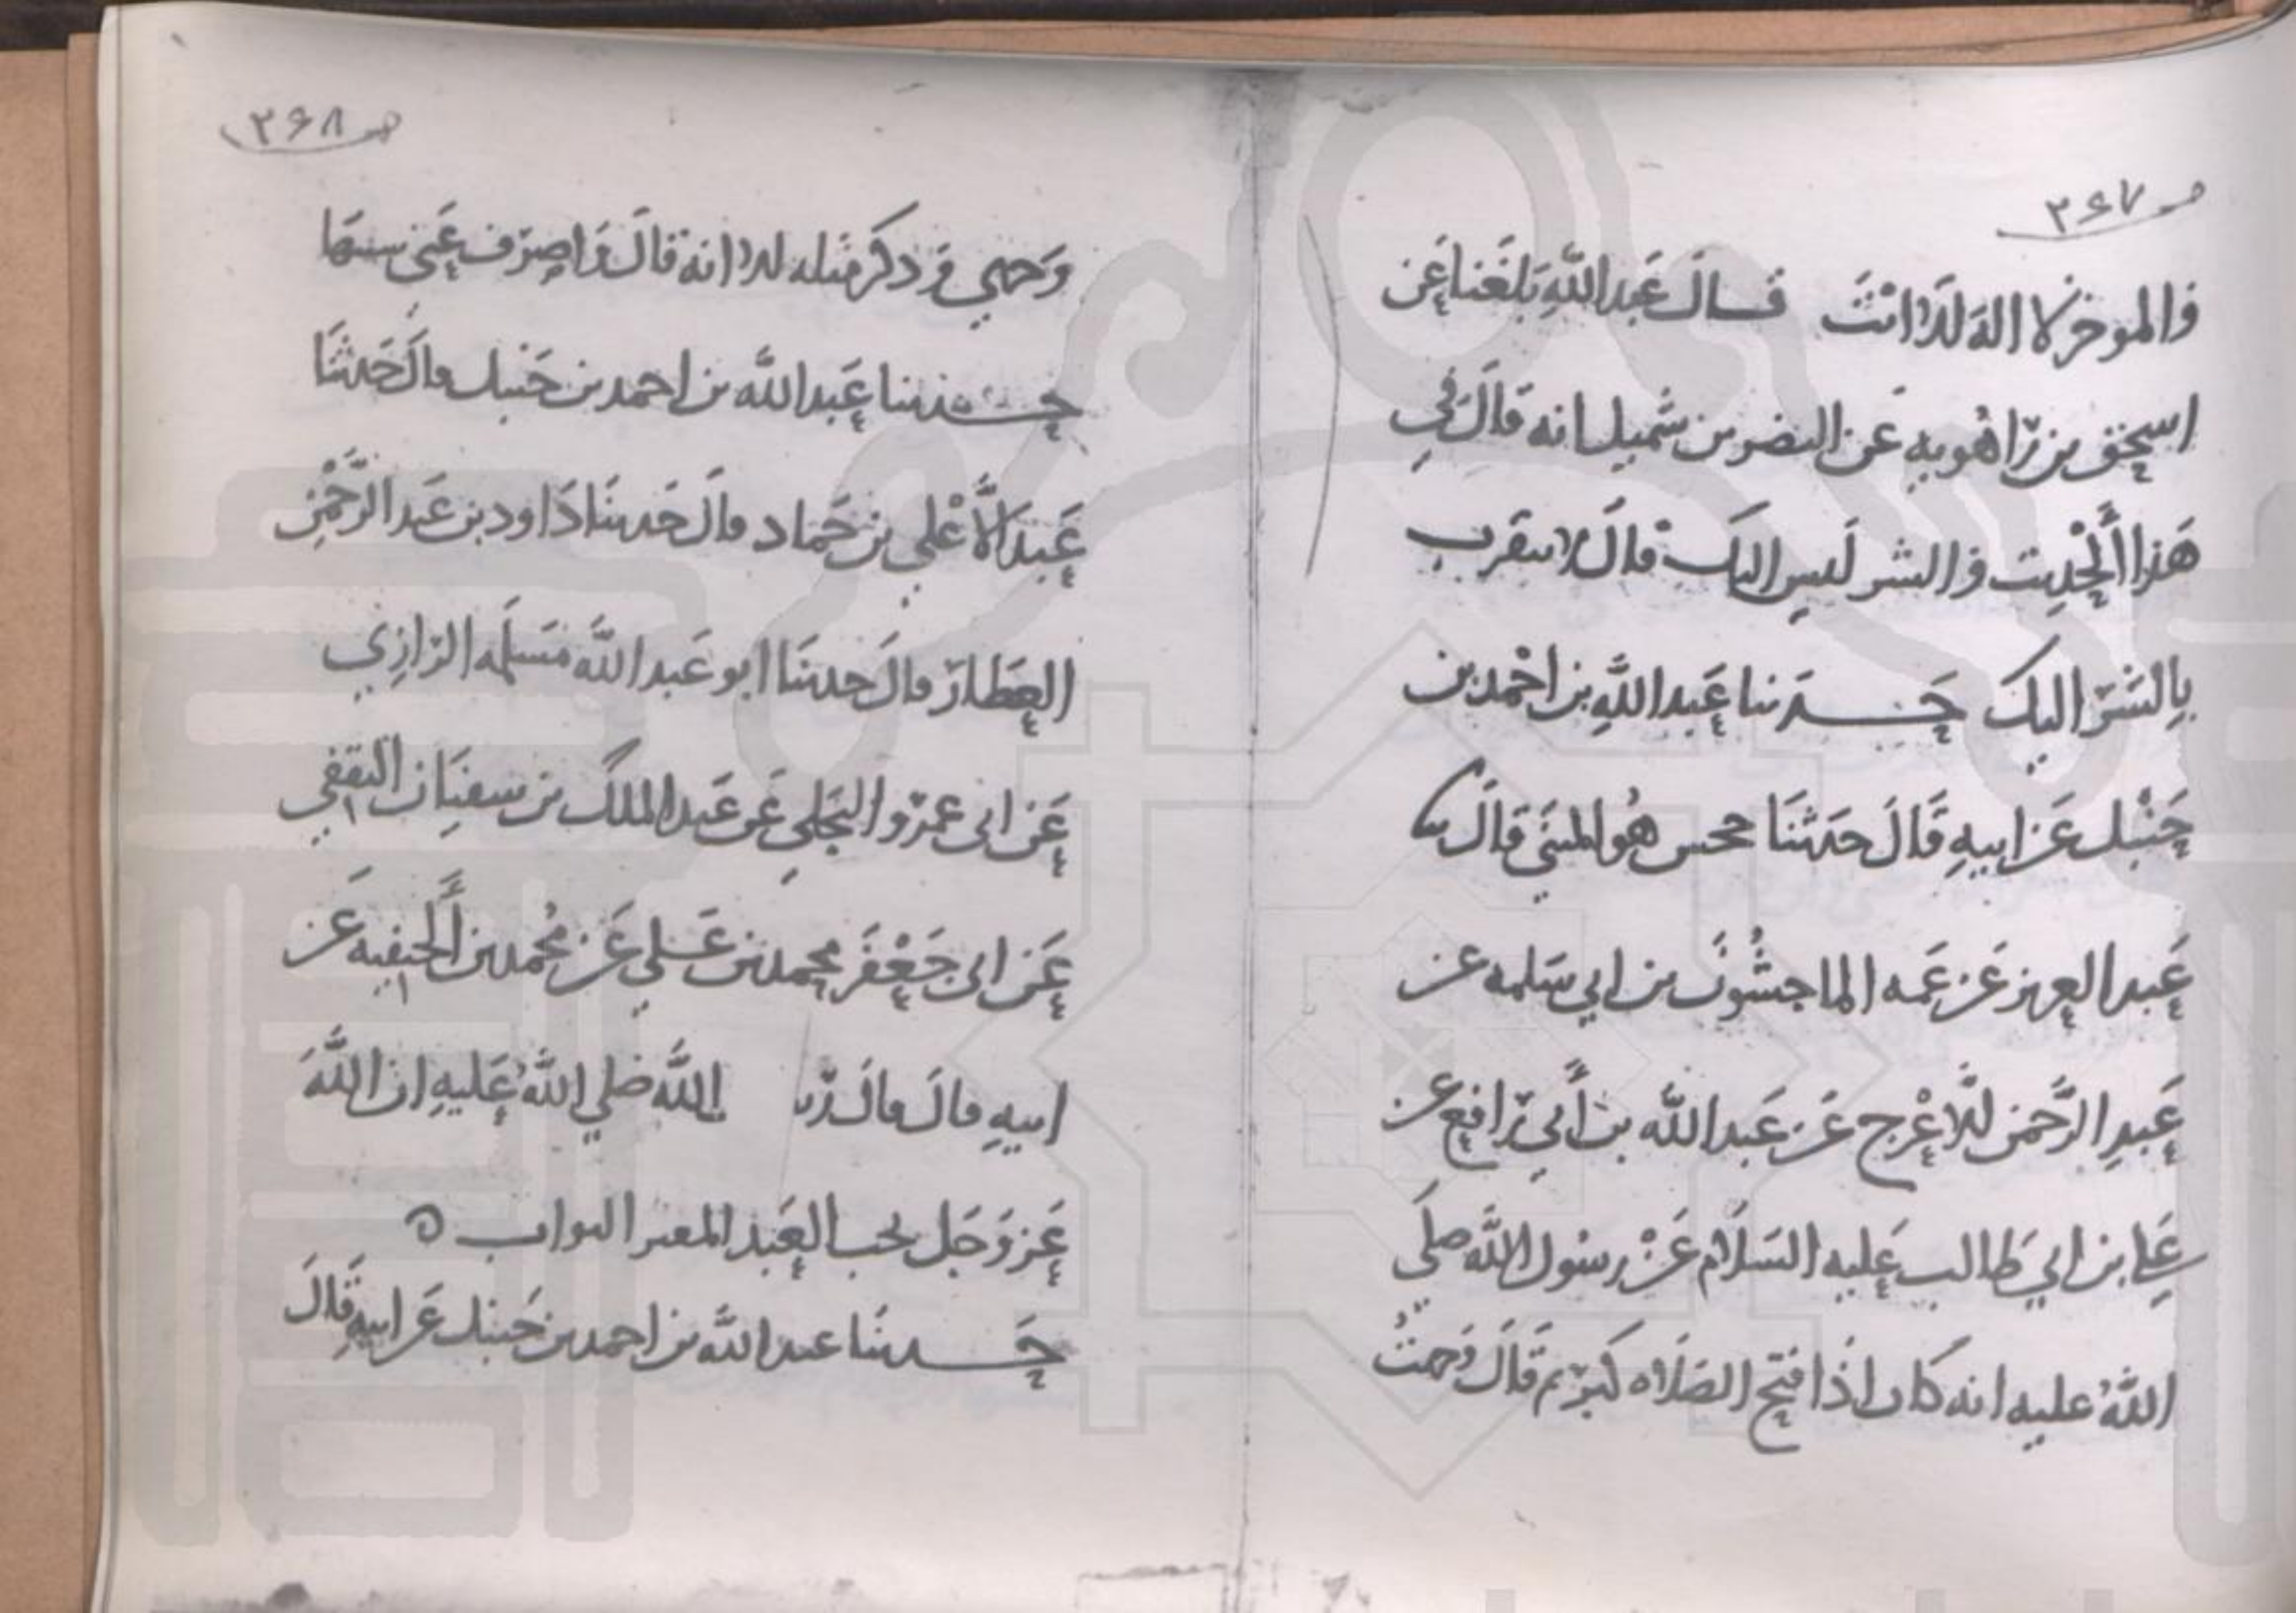 صـ ٣٦٧
والموخر لا اله الا انت قال عَبد اللهِ بَلغَنا عَن
اسحق بن رَاهُويهِ عَن النضر بن شميل انه قالَ في
هَذا الحْدِيت والشر لَيس اليك قالَ لا يتقرب
بِالشَرّ اليك حَدثنا عَبد اللَّهِ بن احْمد بن
حَنْبل عَن ابيهِ قَالَ حَدثنَا حجين هُو المثنى قالَ نا
عَبد العزيز عَن عَمه الماجشُونَ بن ابي سَلمه عن
عَبدِ الرَّحمَن الاعْرج عَن عَبد الله بن أَبي رَافع عن
عَلى بن ابي طَالب عَليه السَلَام عَنْ رسُول الله صلى
اللهُ عليه انه كان اذَا افتتح الصَلَاه كبرّ ثم قَالَ وَجهتُ
صـ ٣٦٨
وَجهي وَذكر مثله الا انه قالَ وَاصرَف عَني سيئهَا
حَدثنا عَبد الله بن احمد بن حَنبل قالَ حَدثنَا
عَبد الأَعْلى بن حَماد قالَ حَدثنَا دَاود بن عَبد الرَّحْمَن
العَطارّ قالَ حَدثنَا ابو عَبد الله مَسَلمه الرّازِي
عَن ابى عَمرّو البَجَلي عَن عَبد الملك بن سفيَان الثقفي
عَن ابى جَعْفَر محمد بن عَلي عَن مُحمد بن الحَنفيه عَن
ابيهِ قالَ قالَ رَسـ الله صَلي اللهُ عَليهِ ان اللهَ
عَز وَجَل يحب العَبد المفتن التواب ه
حَدثنَا عبد الله بن احمد بن حَنبل عَن ابيهِ قَالَ